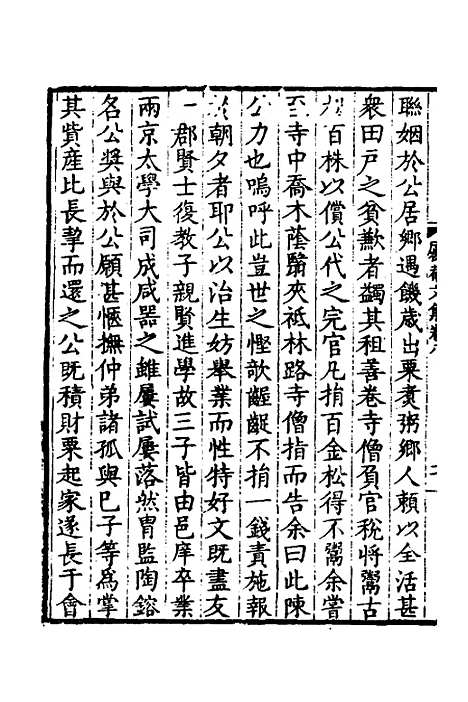 聯姻於公居鄉遇饑歲出粟煑粥鄉人賴以全活甚
衆田戶之貧歉者蠲其租善卷寺僧負官稅將鬻古
百株以償公代之完官凡捐百金松得不鬻余嘗
至寺中喬木蔭翳夾祗林路寺僧指而告余曰此陳
公力也嗚呼此豈世之慳歌齷齪不捐一錢責施報
於朝夕者耶公以治生妨舉業而性特好文既盡友
一郡賢士復教子親賢進學故三子皆由邑庠卒業
兩京太學大司成咸器之雖屢試屢落然胄監陶鎔
名公奬與於公願甚愜撫仲弟諸孤與巳子等爲掌
其貲産比長挈而還之公既積財粟起家遂長于會